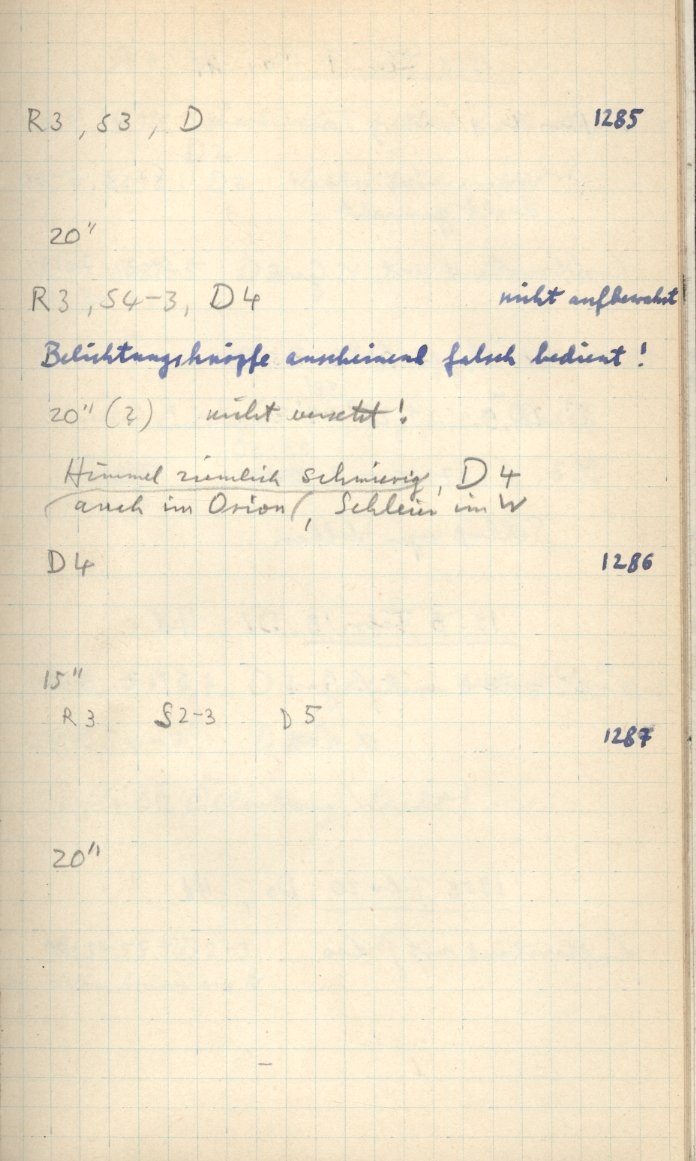 R3, S3, D 1285
20"
R3, S4-3, D4 nicht aufbewahrt
Belichtungsknöpfe anscheinend falsch bedient!
20" (?) nicht versetzt!
Himmel ziemlich schmierig, D4
auch im Orion, Schleier im W
D4 1286
15"
R3 S2-3 D5
1287
20"